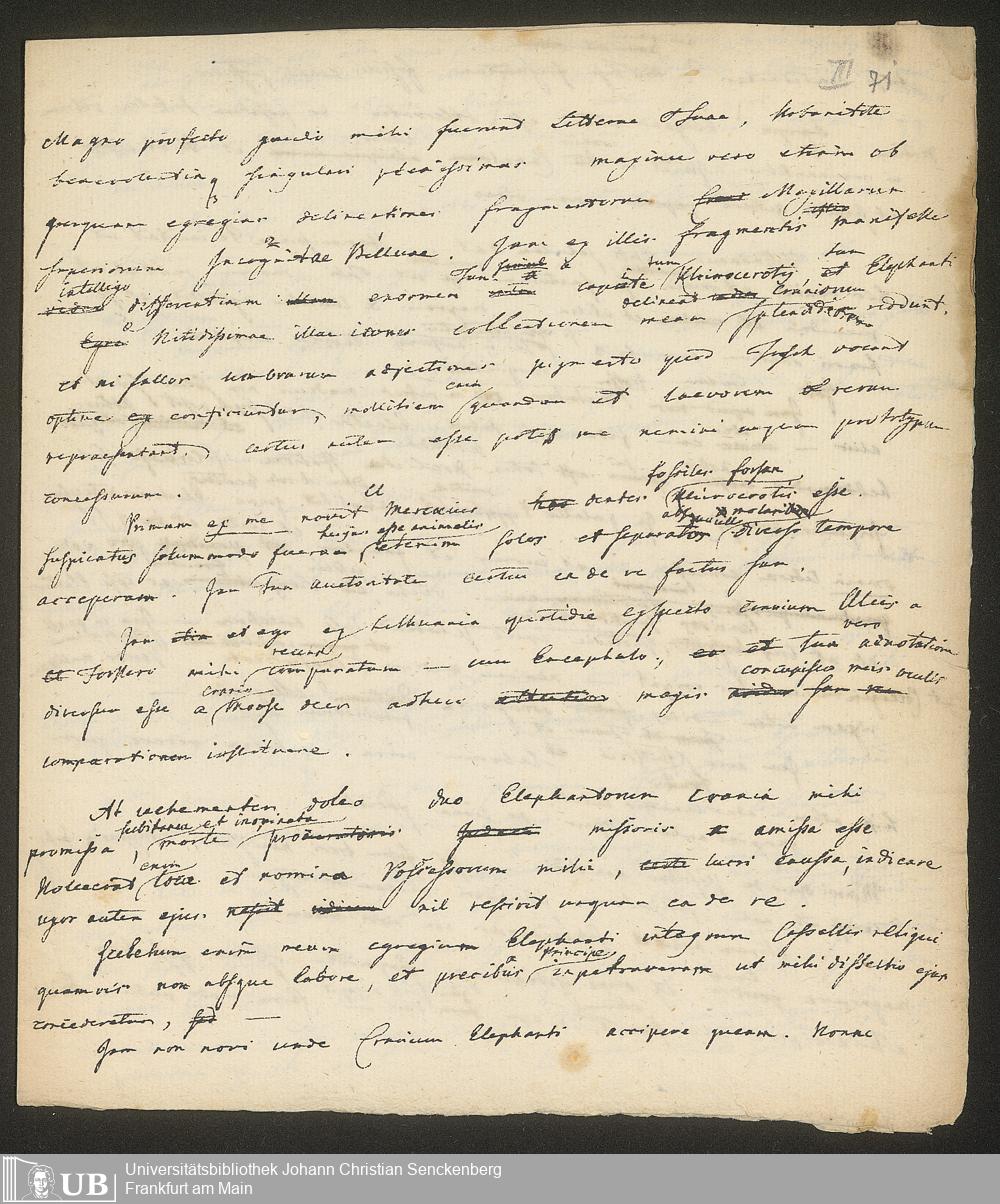 III 71
Magno profecto gaudio mihi fuerunt Litterae Tuae, Urbanitate
benevolentiaq singulari plenissimae maxime vero etiam ob
perquam egregias delineationes fragmentorum Maxillarum
superiorum Incognitae Belluae. Jam ex illis fragmentis manifeste
intelligo differentiam enormem a capite tum Rhinocerotis, tum Elephanti
delineat Craniorum
Nitidissimae illae icones collectionem meam splendidiorem reddunt,
et ni fallor umbrarum adjectiones pigmento quod Tusch vocant
optime conficiuntur, mollitiem quandam et laevorem rerum
repraesentant, certus autem esse potes me nemini unquam prototypum
concessurum.
fossiles forsan
Primum ex me novit Cl Merckius dentes Rhinocerotis esse.
hujus esse animalis
suspicatus solummodo fueram, etenim solos et separatos diverso tempore
acceperam. Jam Tua auctoritate certus ea de re factus sum.
Jam et ego ex Lithuania quotidie exspecto cranium Alcis a
recens vero
Forstero mihi comparatum — cum Encephalo, tua adnotatione
cranio concupisco meis oculis
diversum esse a Moose deer adhuc magis
comparationem instituere.
At vehementer doleo duo Elephantorum Crania mihi
subitanea et inopinata
promissa, morte missoris amissa esse
enim
Noluerunt loca et nomina Possessorum mihi, lucri caussa, indicare
uxor autem ejus nil rescivit unquam ea de re.
Sceletum enim meum egregium Elephanti integrum Cassellis reliqui
a Principe
quamvis non absque labore, et precibus impetraveram ut mihi dissectio ejus
concederetur, —
Jam non novi unde Cranium Elephanti accipere queam. Nonne
UB Universitätsbibliothek Johann Christian Senckenberg
Frankfurt am Main